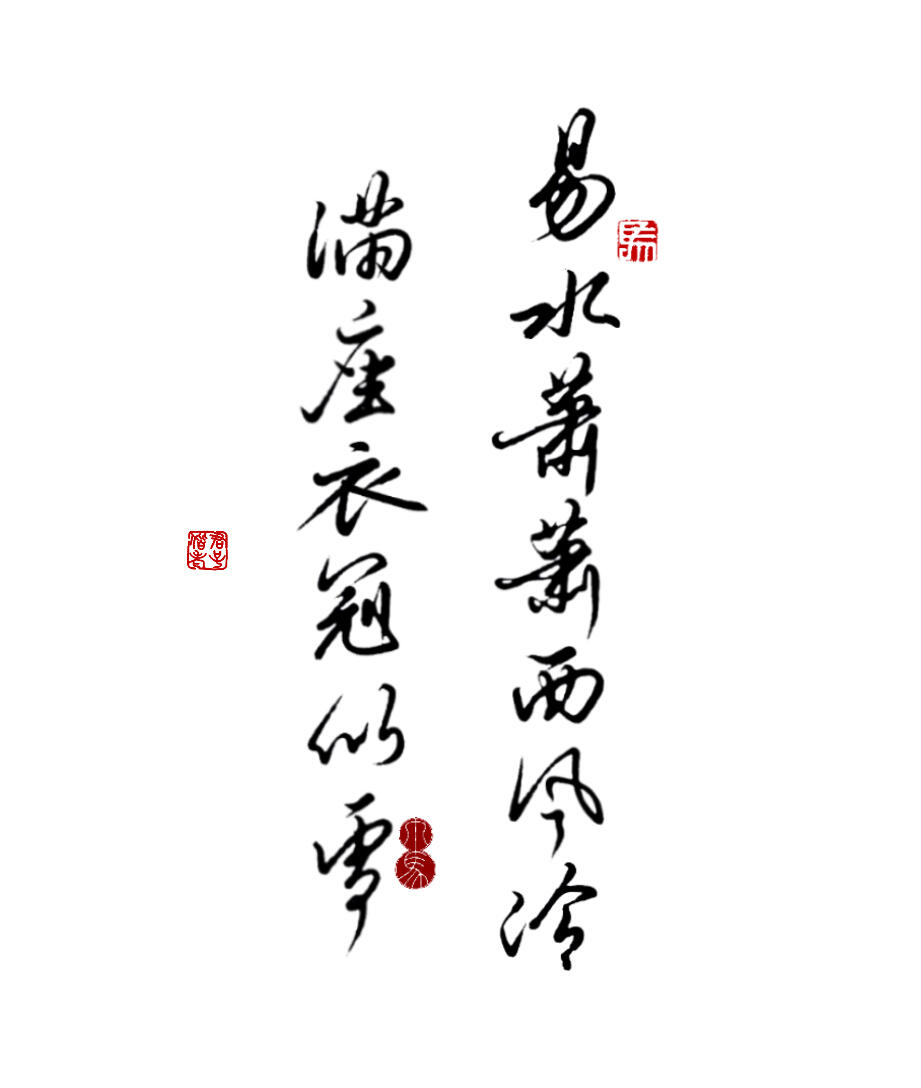 易水萧萧西风冷
满座衣冠似雪